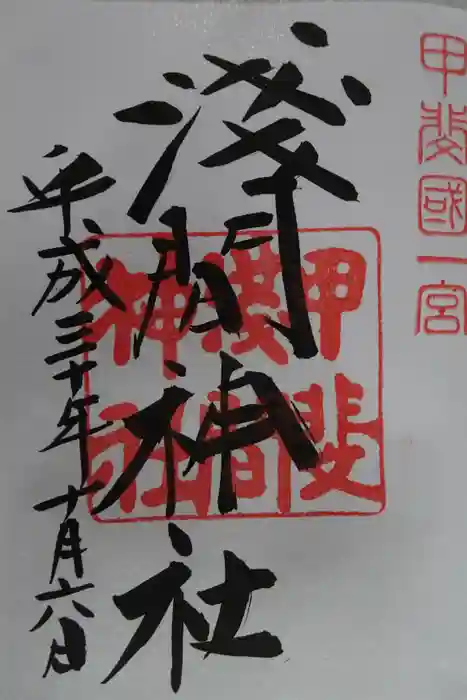 甲斐國一宮
淺間神社
甲斐
淺間
神社
平成三十年十月六日